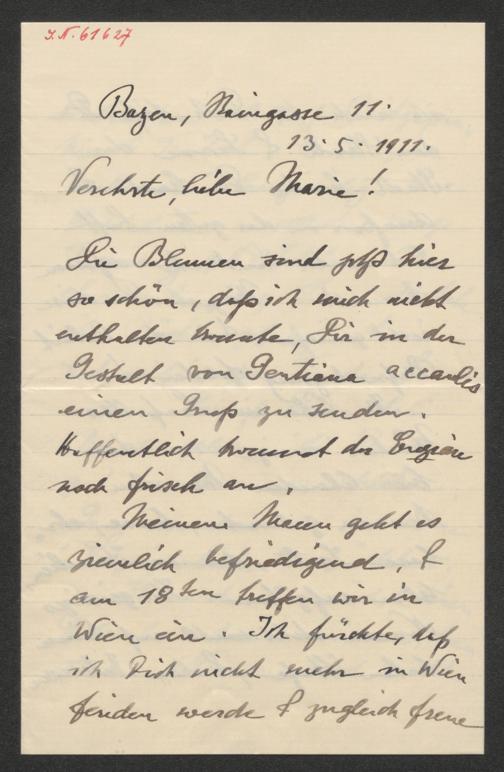 J.N. 61627
Bozen, Haingasse 11.
13. 5. 1911.
Verehrte, liebe Marie!
Die Blumen sind jetzt hier
so schön, daß ich mich nicht
enthalten konnte, Dir in der
Gestalt von Gentiana accaulis
einen Gruß zu senden.
Hoffentlich kommt der Enzian
noch frisch an.
Meinem Mann geht es
ziemlich befriedigend, &
am 18ten treffen wir in
Wien ein. Ich fürchte, daß
ich Dich nicht mehr in Wien
finden werde & zugleich freue